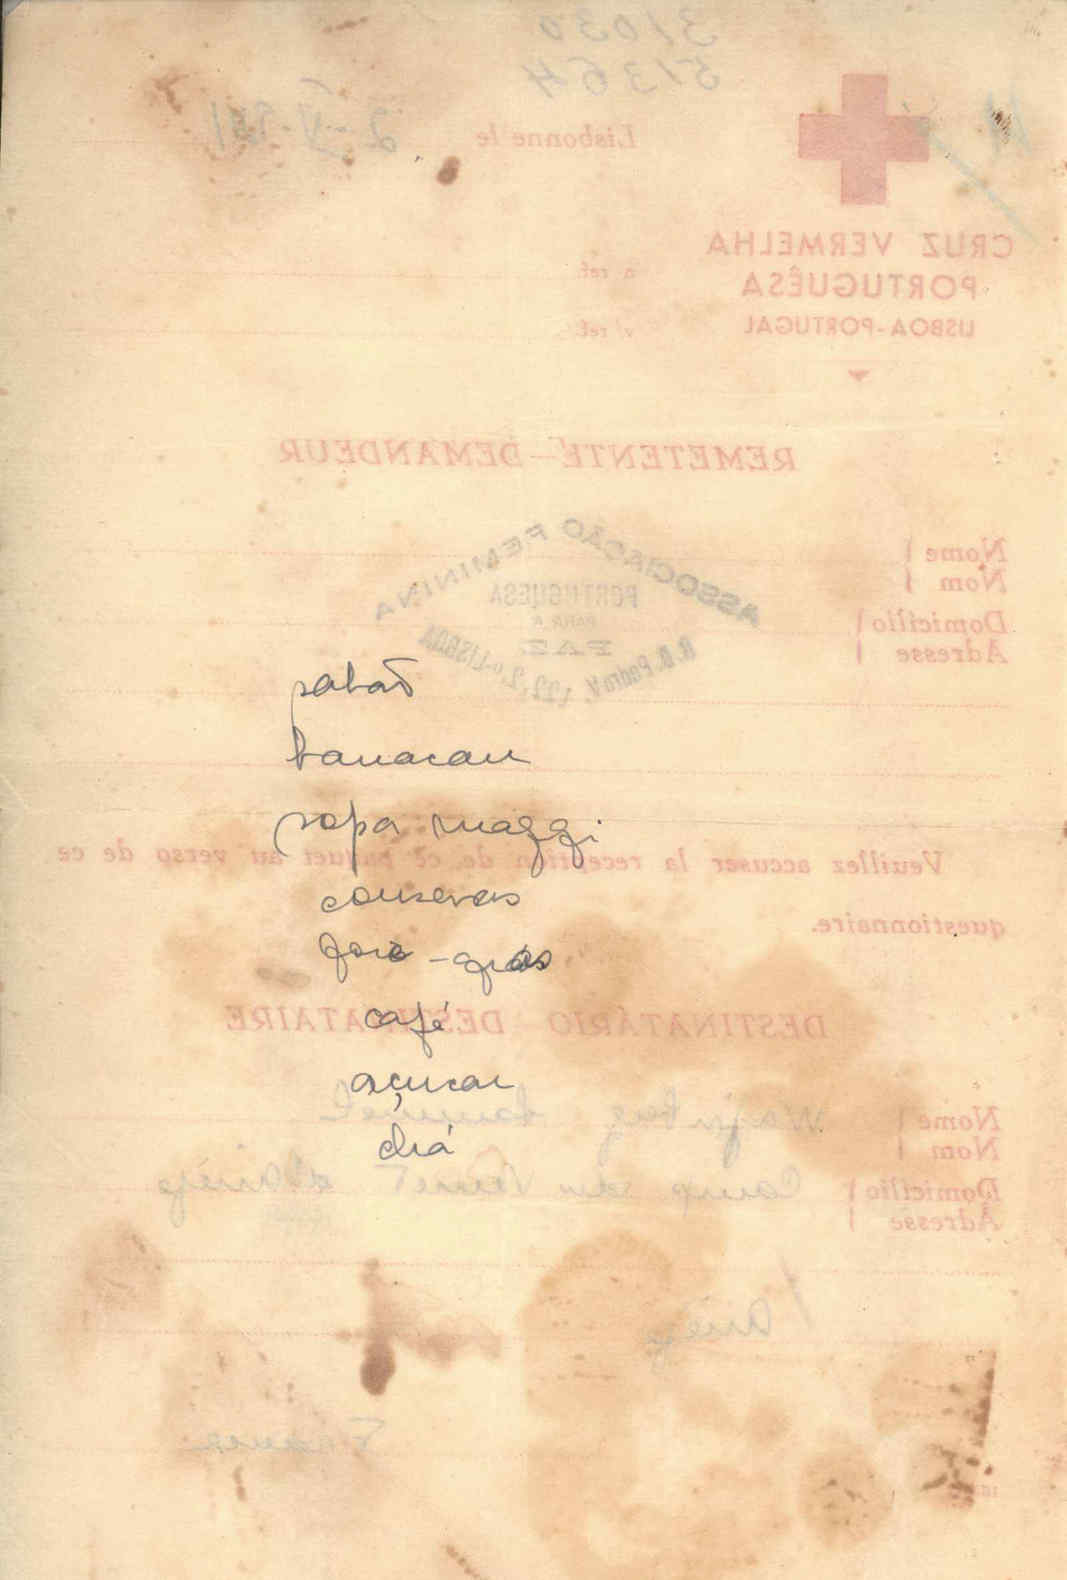 31030
51364
Lisbonne le 2-V-941
CRUZ VERMELHA
PORTUGUÊSA
LISBOA-PORTUGAL
n ref.
v/ ref.
REMETENTE — DEMANDEUR
Nome
Nom
Domicílio
Adresse
ASSOCIAÇÃO FEMININA
PORTUGUESA
PARA A
PAZ
R. D. Pedro V, 122, 2.º - LISBOA
sabaõ
banacau
sopa maggi
conservas
foie-gras
café
açucar
chá
Veuillez accuser la reception de ce paquet au verso de ce
questionnaire.
DESTINATÁRIO DESTINATAIRE
Nome
Nom
Domicílio Camp du Vernet d'Ariège
Adresse
France